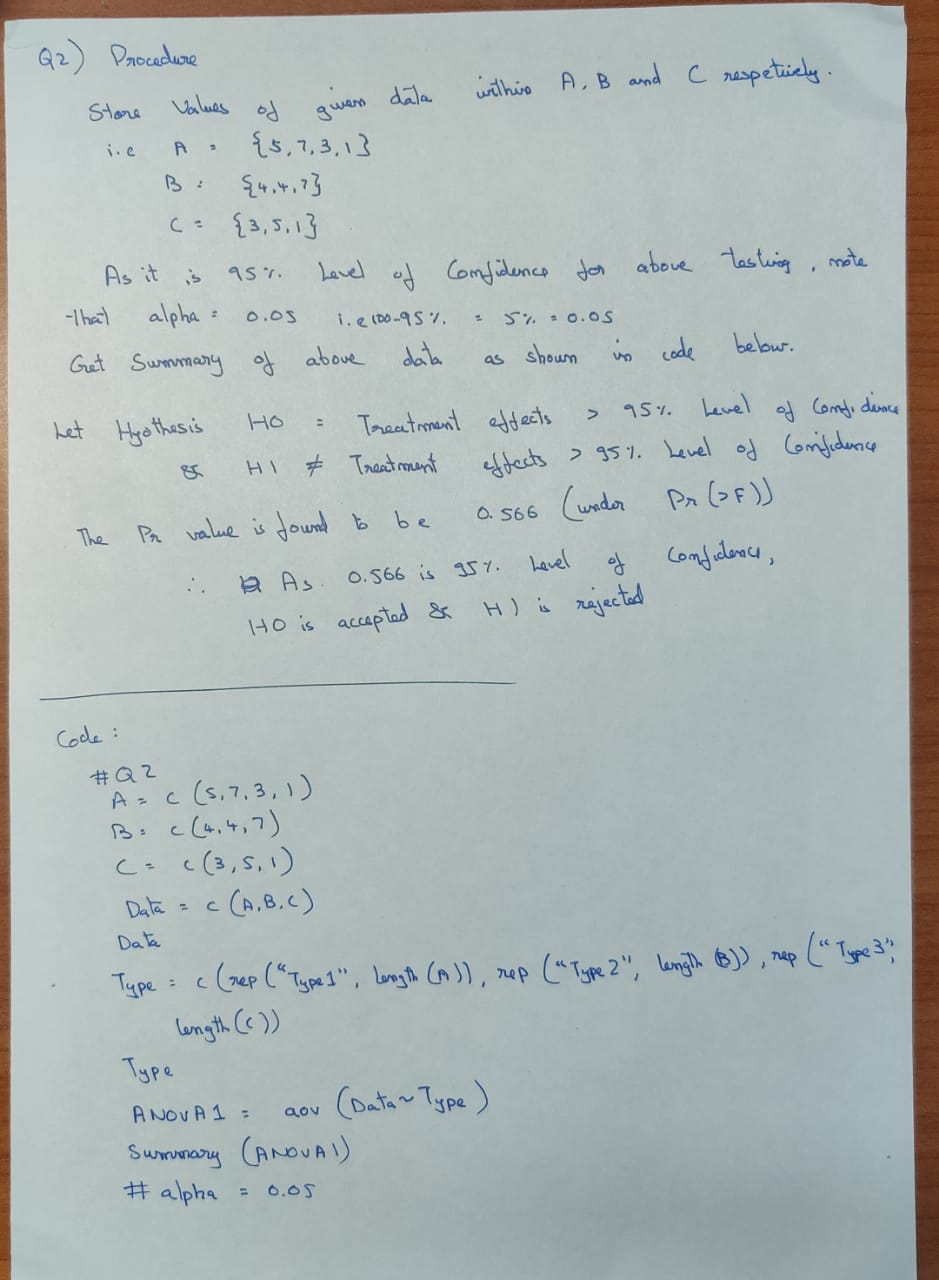 Q2) Procedure
Store Values of given data within A, B and C respetively.
i.e A = {5,7,3,1}
B = {4,4,7}
C = {3,5,1}
As it is 95% Level of Confidence for above testing, note
that alpha = 0.05 i.e 100-95% = 5% = 0.05
Get Summary of above data as shown in code below.
Let Hyothesis HO = Treatment effects > 95% Level of Confidence
& H1 ≠ Treatment effects > 95% Level of Confidence
The Pr value is found to be 0.566 (under Pr(>F))
∴ As 0.566 is 95% Level of Confidence,
HO is accepted & H1 is rejected
Code:
#Q2
A = c(5,7,3,1)
B = c(4,4,7)
C = c(3,5,1)
Data = c(A,B,C)
Data
Type = c(rep("Type1", length(A)), rep("Type2", length(B)), rep("Type3",
length(C))
Type
ANOVA1 = aov (Data~Type)
Summary (ANOVA1)
# alpha = 0.05